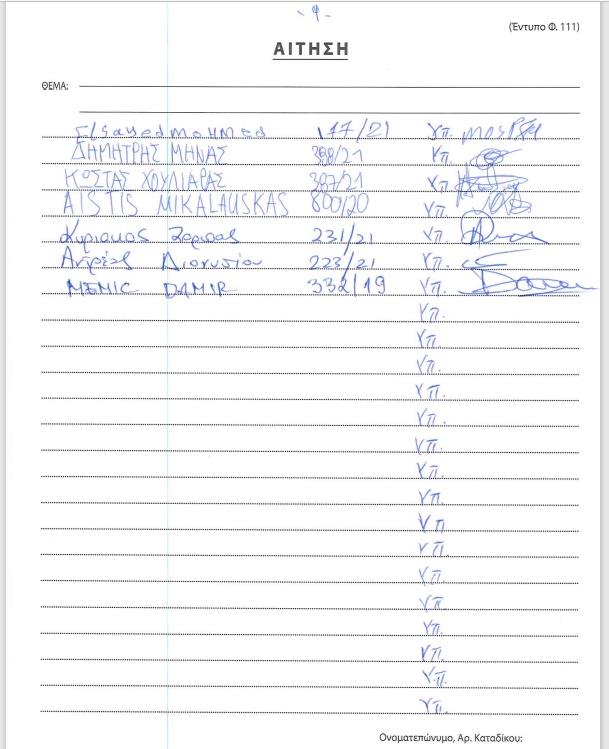 - 9 -
(Έντυπο Φ. 111)
ΑΙΤΗΣΗ
ΘΕΜΑ:
Elsayed mohmed 177/21 Υπ.
ΔΗΜΗΤΡΗΣ ΜΗΝΑΣ 388/21 Υπ.
ΚΩΣΤΑΣ ΧΟΥΛΙΑΡΑΣ 387/21 Υπ.
AISTIS MIKALAUSKAS 800/20 Υπ.
Κυριακος 231/21 Υπ.
Αντρέας Διονυσίου 223/21 Υπ.
MEMIC DAMIR 332/19 Υπ.
Υπ.
Υπ.
Υπ.
Υπ.
Υπ.
Υπ.
Υπ.
Υπ.
Υπ
Υπ.
Υπ.
Υπ.
Υπ.
Υπ.
Υπ.
Υπ.
Ονοματεπώνυμο, Αρ. Καταδίκου: